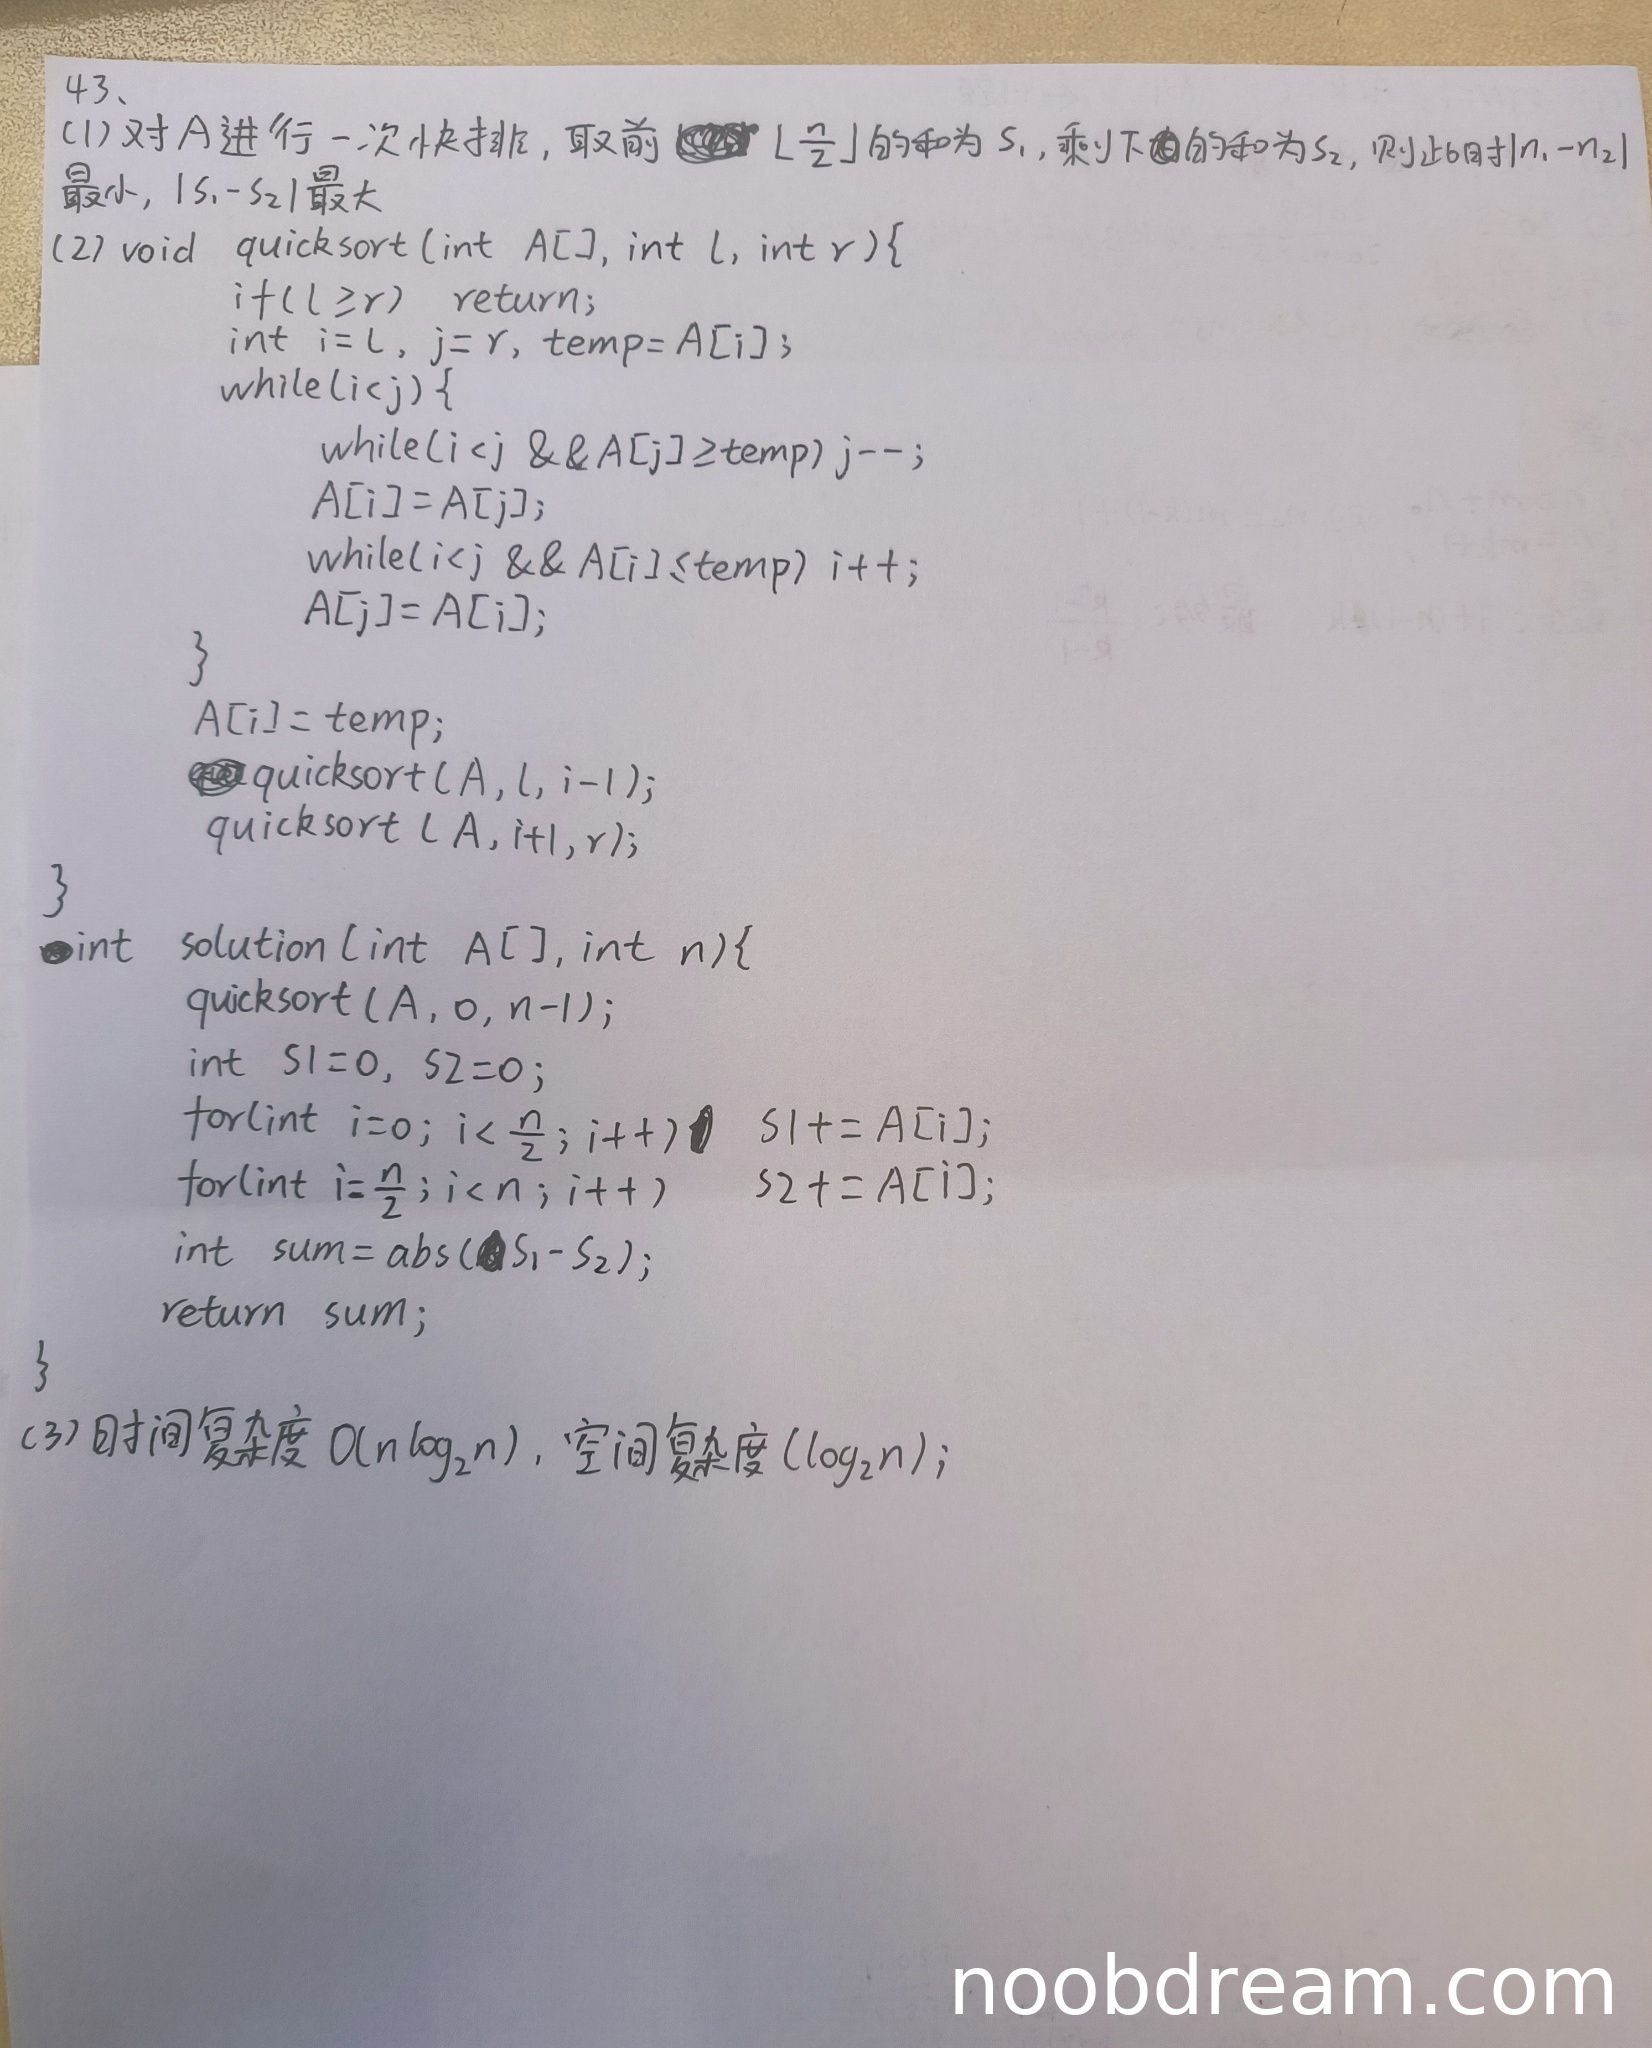 43、
(1)对A进行一次快排,取前⌊n/2⌋的和为S₁,剩下的和为S₂,则此时|n₁-n₂|
最小,|S₁-S₂|最大
(2) void quicksort(int A[], int l, int r){
if(l≥r) return;
int i=l, j=r, temp=A[i];
while(i<j){
while(i<j &&A[j]≥temp) j--;
A[i]=A[j];
while(i<j && A[i]≤temp) i++;
A[j]=A[i];
}
A[i]=temp;
quicksort(A, l, i-1);
quicksort(A, i+1, r);
}
int solution(int A[], int n){
quicksort(A, 0, n-1);
int S1=0, S2=0;
for(int i=0; i<n/2; i++) S1+=A[i];
for(int i=n/2; i<n; i++) S2+=A[i];
int sum=abs(S₁-S₂);
return sum;
}
(3)时间复杂度O(nlog₂n),空间复杂度(log₂n);
noobdream.com